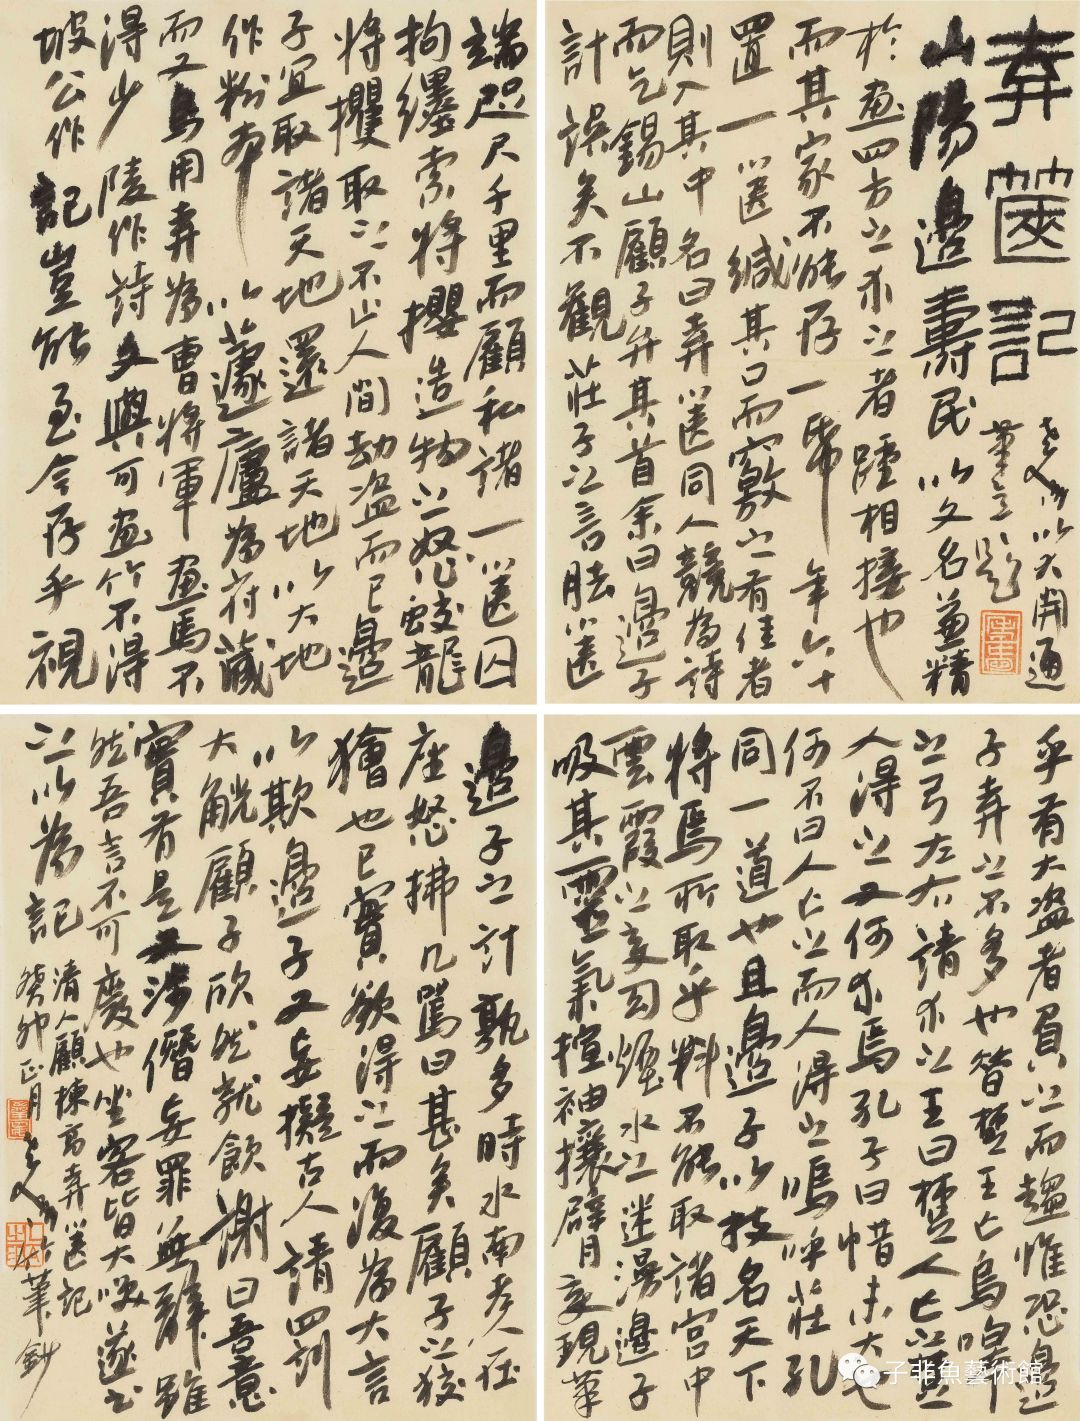 弆篋記
老人以大開通
筆意題
山陽邊壽民以文名兼精
於畫四方之求之者踵相接也
而其家不能存一紙年六十
置一篋緘其口而竅之有佳者
則入其中名曰弆篋同人競為詩
而乞錫山顧子弁其首余曰邊子
計誤矣不觀莊子之言胠篋
乎有大盜者負之而趨惟恐邊
子弆之不多也昔楚王亡烏嘷
之弓左右請求之王曰楚人亡之楚
人得之又何求焉孔子曰惜未大也
何不曰人亡之而人得之嗚呼莊孔
同一道也且邊子以技名天下
將焉所取乎料不能取諸宮中
雲霞之變幻煙水之迷漫邊子
吸其靈氣揎袖攘臂變現筆
端咫尺千里而顧私諸一篋囚
拘纆索將攖造物之怒蛟龍
將攫取之不止人間劫盜而已邊
子宜取諸天地還諸天地以大地
作粉本以蘧廬為府藏
而又烏用弆為曹將軍畫馬不
得少陵作詩文與可畫竹不得
坡公作記豈能至今存乎視
邊子之計孰多時水南老人在
座怒拂几罵曰甚矣顧子之狡
獪也已實欲得之而復為大言
以欺邊子又妄擬古人請四訓
大觥顧子欣然就飲謝曰吾意
實有是又涉僭妄罪無辭雖
然吾言不可廢也坐客皆大噱遂書
之以為記
清人顧棟高弆篋記
癸卯正月老人竹筆鈔
子非魚藝術館